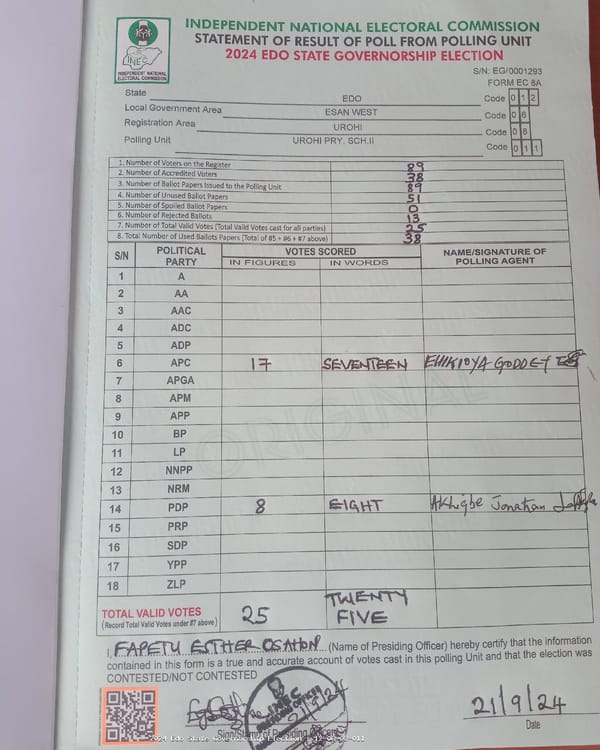 INDEPENDENT NATIONAL ELECTORAL COMMISSION
STATEMENT OF RESULT OF POLL FROM POLLING UNIT
2024 EDO STATE GOVERNORSHIP ELECTION
INEC
INDEPENDENT NATIONAL
ELECTORAL COMMISSION
S/N: EG/0001293
FORM EC 8A
State EDO Code 0 1 2
Local Government Area ESAN WEST Code 0 6
Registration Area UROHI Code 0 8
Polling Unit UROHI PRY. SCH.II Code 0 1 1
1. Number of Voters on the Register 89
2. Number of Accredited Voters 38
3. Number of Ballot Papers Issued to the Polling Unit 89
4. Number of Unused Ballot Papers 51
5. Number of Spoiled Ballot Papers 0
6. Number of Rejected Ballots 13
7. Number of Total Valid Votes (Total Valid Votes cast for all parties) 25
8. Total Number of Used Ballots Papers (Total of #5 + #6 + #7 above) 38
S/N POLITICAL PARTY VOTES SCORED NAME/SIGNATURE OF POLLING AGENT
IN FIGURES IN WORDS
1 A
2 AA
3 AAC
4 ADC
5 ADP
6 APC 17 SEVENTEEN EHIKIOYA GODDEY
7 APGA
8 APM
9 APP
10 BP
11 LP
12 NNPP
13 NRM
14 PDP 8 EIGHT Akhigbe Jonathan
15 PRP
16 SDP
17 YPP
18 ZLP
ORIGINAL
TOTAL VALID VOTES 25 TWENTY FIVE
(Record Total Valid Votes under #7 above)
I, FAPETU ESTHER OSAHON (Name of Presiding Officer) hereby certify that the information
contained in this form is a true and accurate account of votes cast in this polling Unit and that the election was
CONTESTED/NOT CONTESTED
INEC
21/9/24
21/9/24
Date